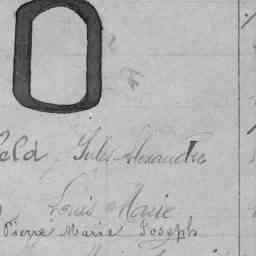 O
feld Jules Alexandre
Louis Marie
Pierre Marie Joseph